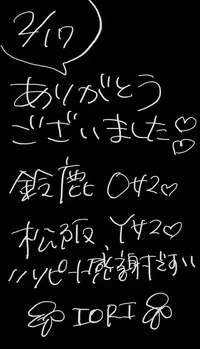 2/17
ありがとう
ございました♡♡
鈴鹿 Oサマ♡
松阪 Yサマ♡
リピート感謝ですッ
IORI